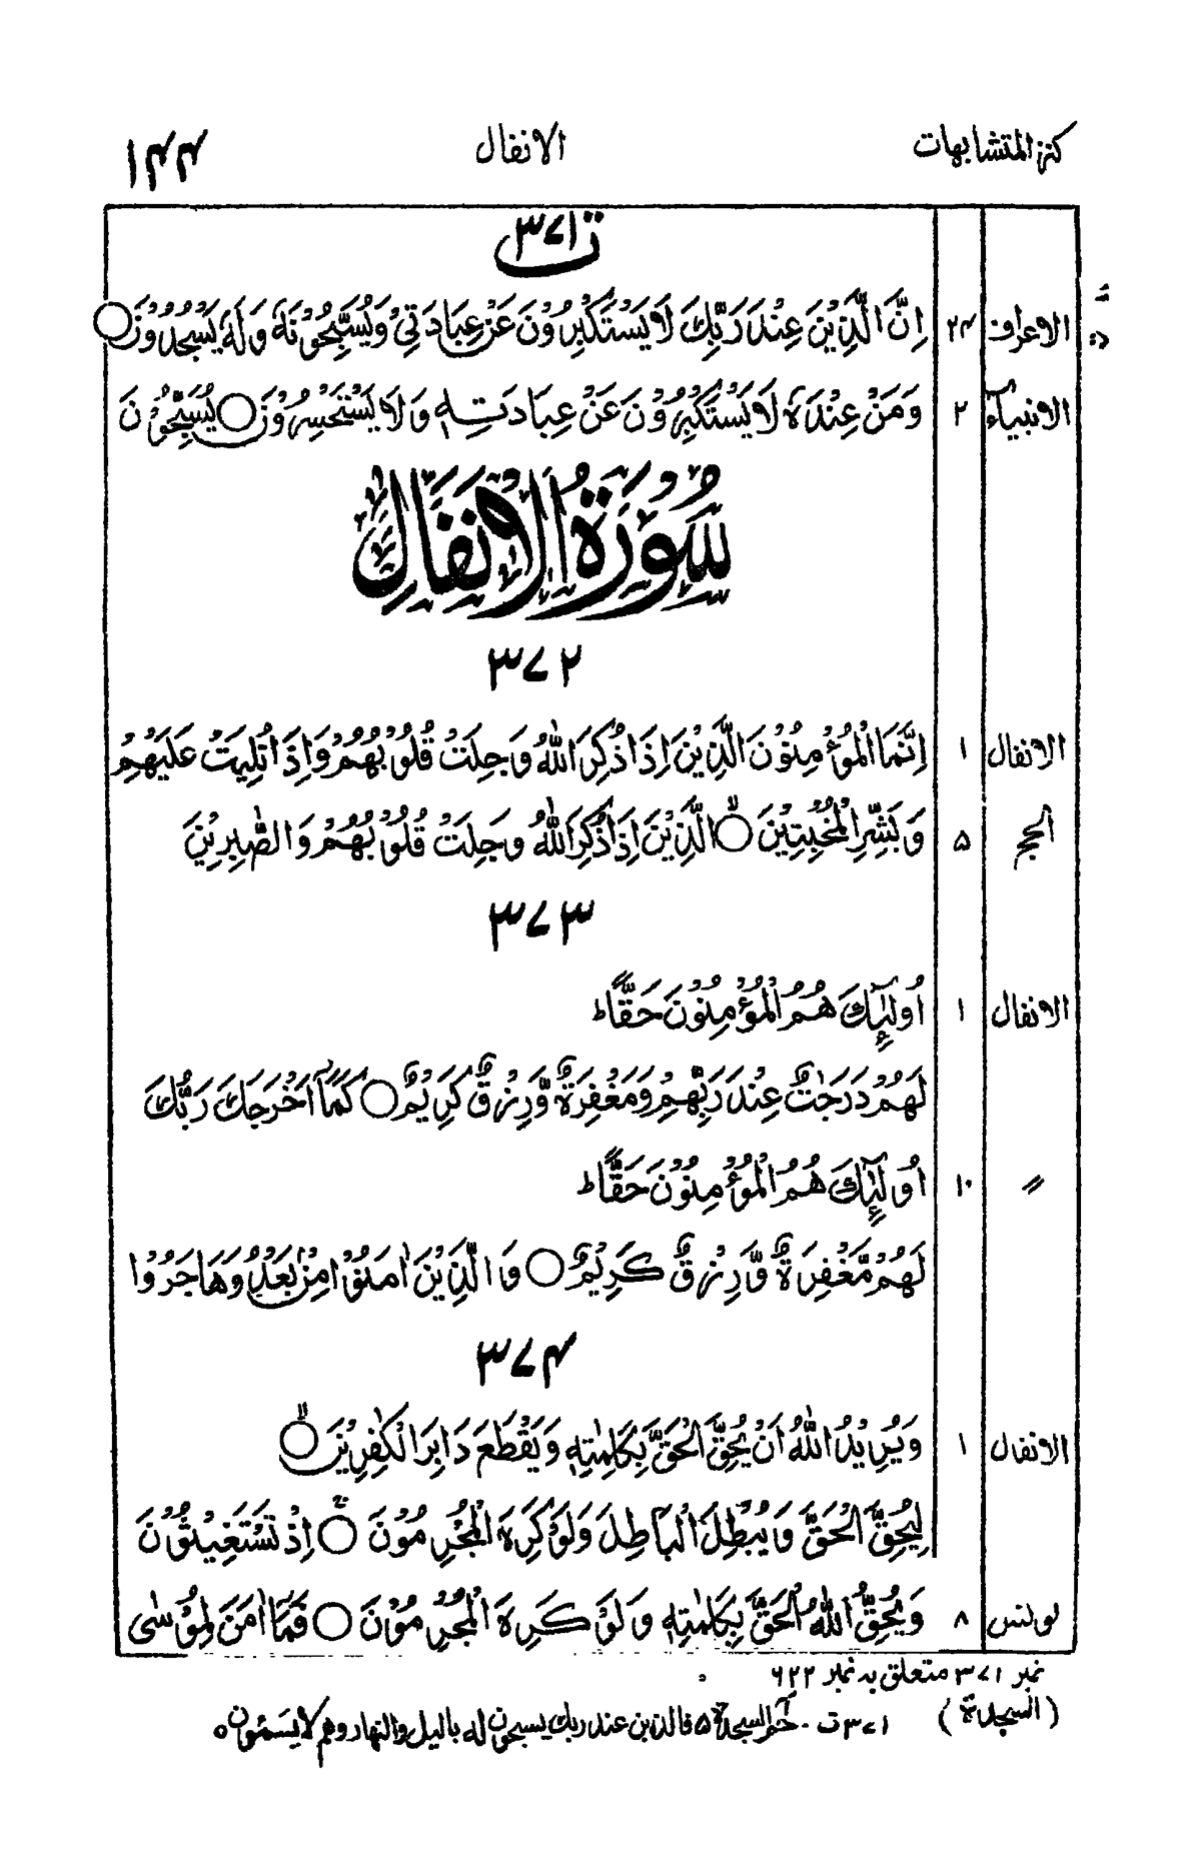 كنز المتشابهات الانفال ۱۴۴
ت۳۷۱
الاعراف ۲۴ اِنَّ الَّذِيْنَ عِنْدَ رَبِّكَ لَا يَسْتَكْبِرُوْنَ عَنْ عِبَادَتِهٖ وَيُسَبِّحُوْنَهٗ وَلَهٗ يَسْجُدُوْنَ ○
الانبیآء ۲ وَمَنْ عِنْدَهٗ لَا يَسْتَكْبِرُوْنَ عَنْ عِبَادَتِهٖ وَلَا يَسْتَحْسِرُوْنَ ○ يُسَبِّحُوْنَ
سُوْرَةُ الْاَنْفَالِ
۳۷۲
الانفال ۱ اِنَّمَا الْمُؤْمِنُوْنَ الَّذِيْنَ اِذَا ذُكِرَ اللّٰهُ وَجِلَتْ قُلُوْبُهُمْ وَاِذَا تُلِيَتْ عَلَيْهِمْ
الحج ۵ وَبَشِّرِ الْمُخْبِتِيْنَ ○ الَّذِيْنَ اِذَا ذُكِرَ اللّٰهُ وَجِلَتْ قُلُوْبُهُمْ وَالصّٰبِرِيْنَ
۳۷۳
الانفال ۱ اُولٰٓئِكَ هُمُ الْمُؤْمِنُوْنَ حَقًّا ط
لَهُمْ دَرَجٰتٌ عِنْدَ رَبِّهِمْ وَمَغْفِرَةٌ وَّرِزْقٌ كَرِيْمٌ ○ كَمَآ اَخْرَجَكَ رَبُّكَ
〃 ۱۰ اُولٰٓئِكَ هُمُ الْمُؤْمِنُوْنَ حَقًّا ط
لَهُمْ مَّغْفِرَةٌ وَّرِزْقٌ كَرِيْمٌ ○ وَالَّذِيْنَ اٰمَنُوْا مِنْۢ بَعْدُ وَهَاجَرُوْا
۳۷۴
الانفال ۱ وَيُرِيْدُ اللّٰهُ اَنْ يُّحِقَّ الْحَقَّ بِكَلِمٰتِهٖ وَيَقْطَعَ دَابِرَ الْكٰفِرِيْنَ ○
لِيُحِقَّ الْحَقَّ وَيُبْطِلَ الْبَاطِلَ وَلَوْ كَرِهَ الْمُجْرِمُوْنَ ○ اِذْ تَسْتَغِيْثُوْنَ
یونس ۸ وَيُحِقُّ اللّٰهُ الْحَقَّ بِكَلِمٰتِهٖ وَلَوْ كَرِهَ الْمُجْرِمُوْنَ ○ فَمَآ اٰمَنَ لِمُوْسٰى
نمبر ۳۷۱ متعلق بہ نمبر ۶۲۲
(السجدة) ۳۷۱ت ۔ حٰمٓ السجدة ۵ فالذین عند ربك یسبحون له بالیل والنهار وهم لَا یَسْـَٔمُوْنَ ○